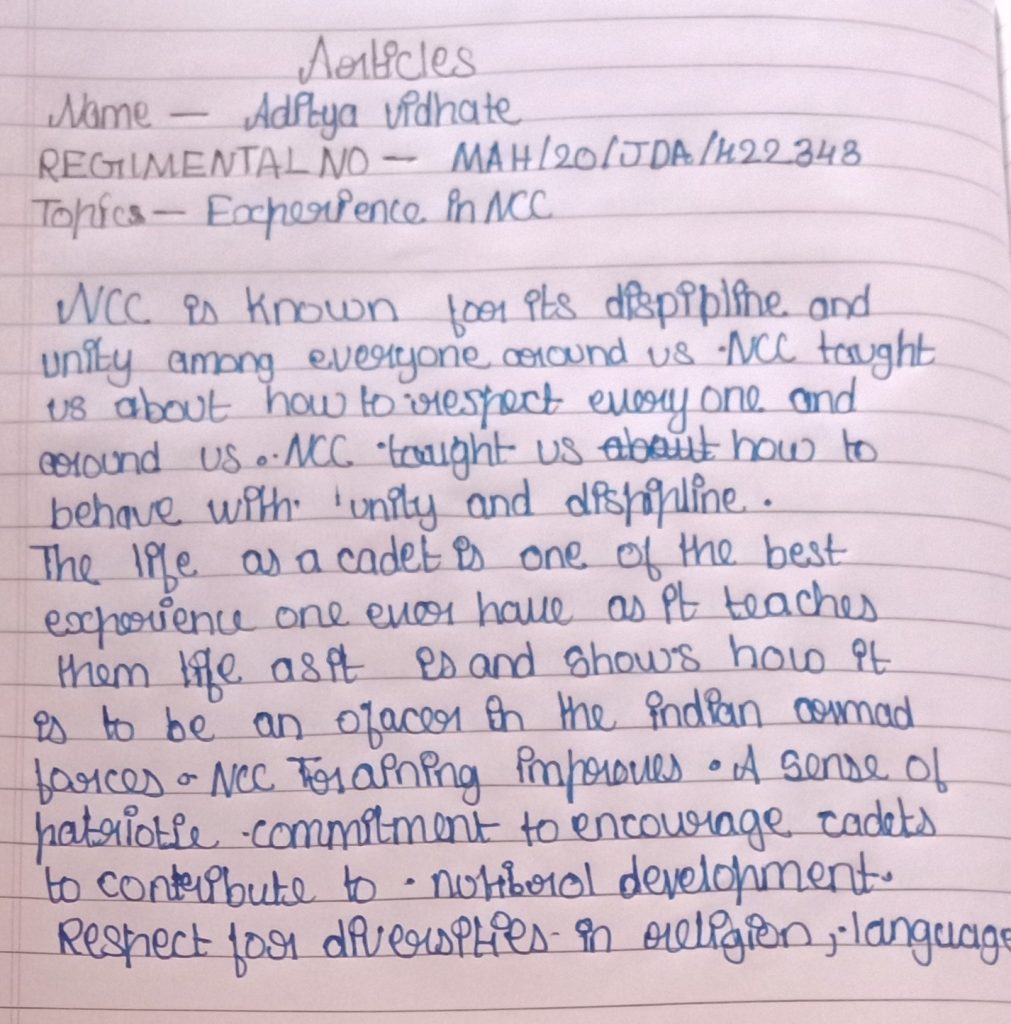 Articles
Name — Aditya vidhate
REGIMENTAL NO — MAH/20/JDA/422348
Topics — Experience in NCC
NCC is known for its dispipline and
unity among everyone around us . NCC taught
us about how to respect everyone and
around us . NCC taught us about how to
behave with unity and dispipline .
The life as a cadet is one of the best
experience one ever have as it teaches
them life as it is and shows how it
is to be an ofacer in the indian armad
forces . NCC Training improves . A sense of
patriotic commitment to encourage cadets
to contribute to development .
Respect for diversities in religion , language